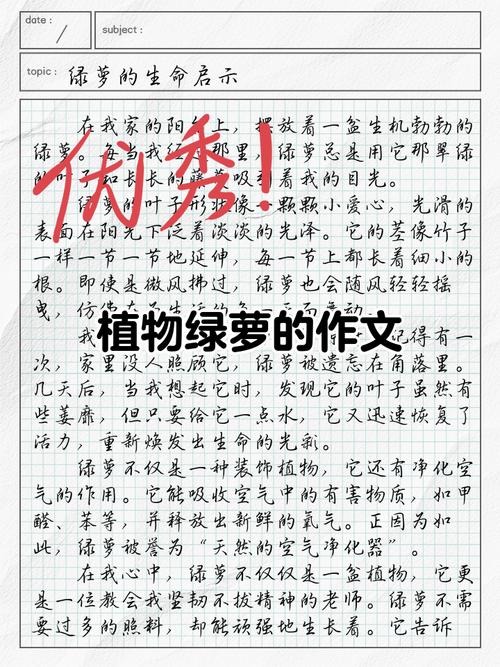 date :
subject :
topic : 绿萝的生命启示
在我家的阳台上，摆放着一盆生机勃勃的
绿萝。每当我经过那里，绿萝总是用它那翠绿
的叶子和长长的藤蔓吸引着我的目光。
优秀！
绿萝的叶子形状像一颗颗小爱心，光滑的
表面在阳光下泛着淡淡的光泽。它的茎像竹子
一样一节一节地延伸，每一节上都长着细小的
根。即使是微风拂过，绿萝也会随风轻轻摇
曳，仿佛在
植物绿萝的作文
我
记得有一
次，家里没人照顾它，绿萝被遗忘在角落里。
几天后，当我想起它时，发现它的叶子虽然有
些萎靡，但只要给它一点水，它又迅速恢复了
活力，重新焕发出生命的光彩。
绿萝不仅是一种装饰植物，它还有净化空
气的作用。它能吸收空气中的有害物质，如甲
醛、苯等，并释放出新鲜的氧气。正因为如
此，绿萝被誉为“天然的空气净化器”。
在我心中，绿萝不仅仅是一盆植物，它更
是一位教会我坚韧不拔精神的老师。绿萝不需
要过多的照料，却能顽强地生长着。它告诉